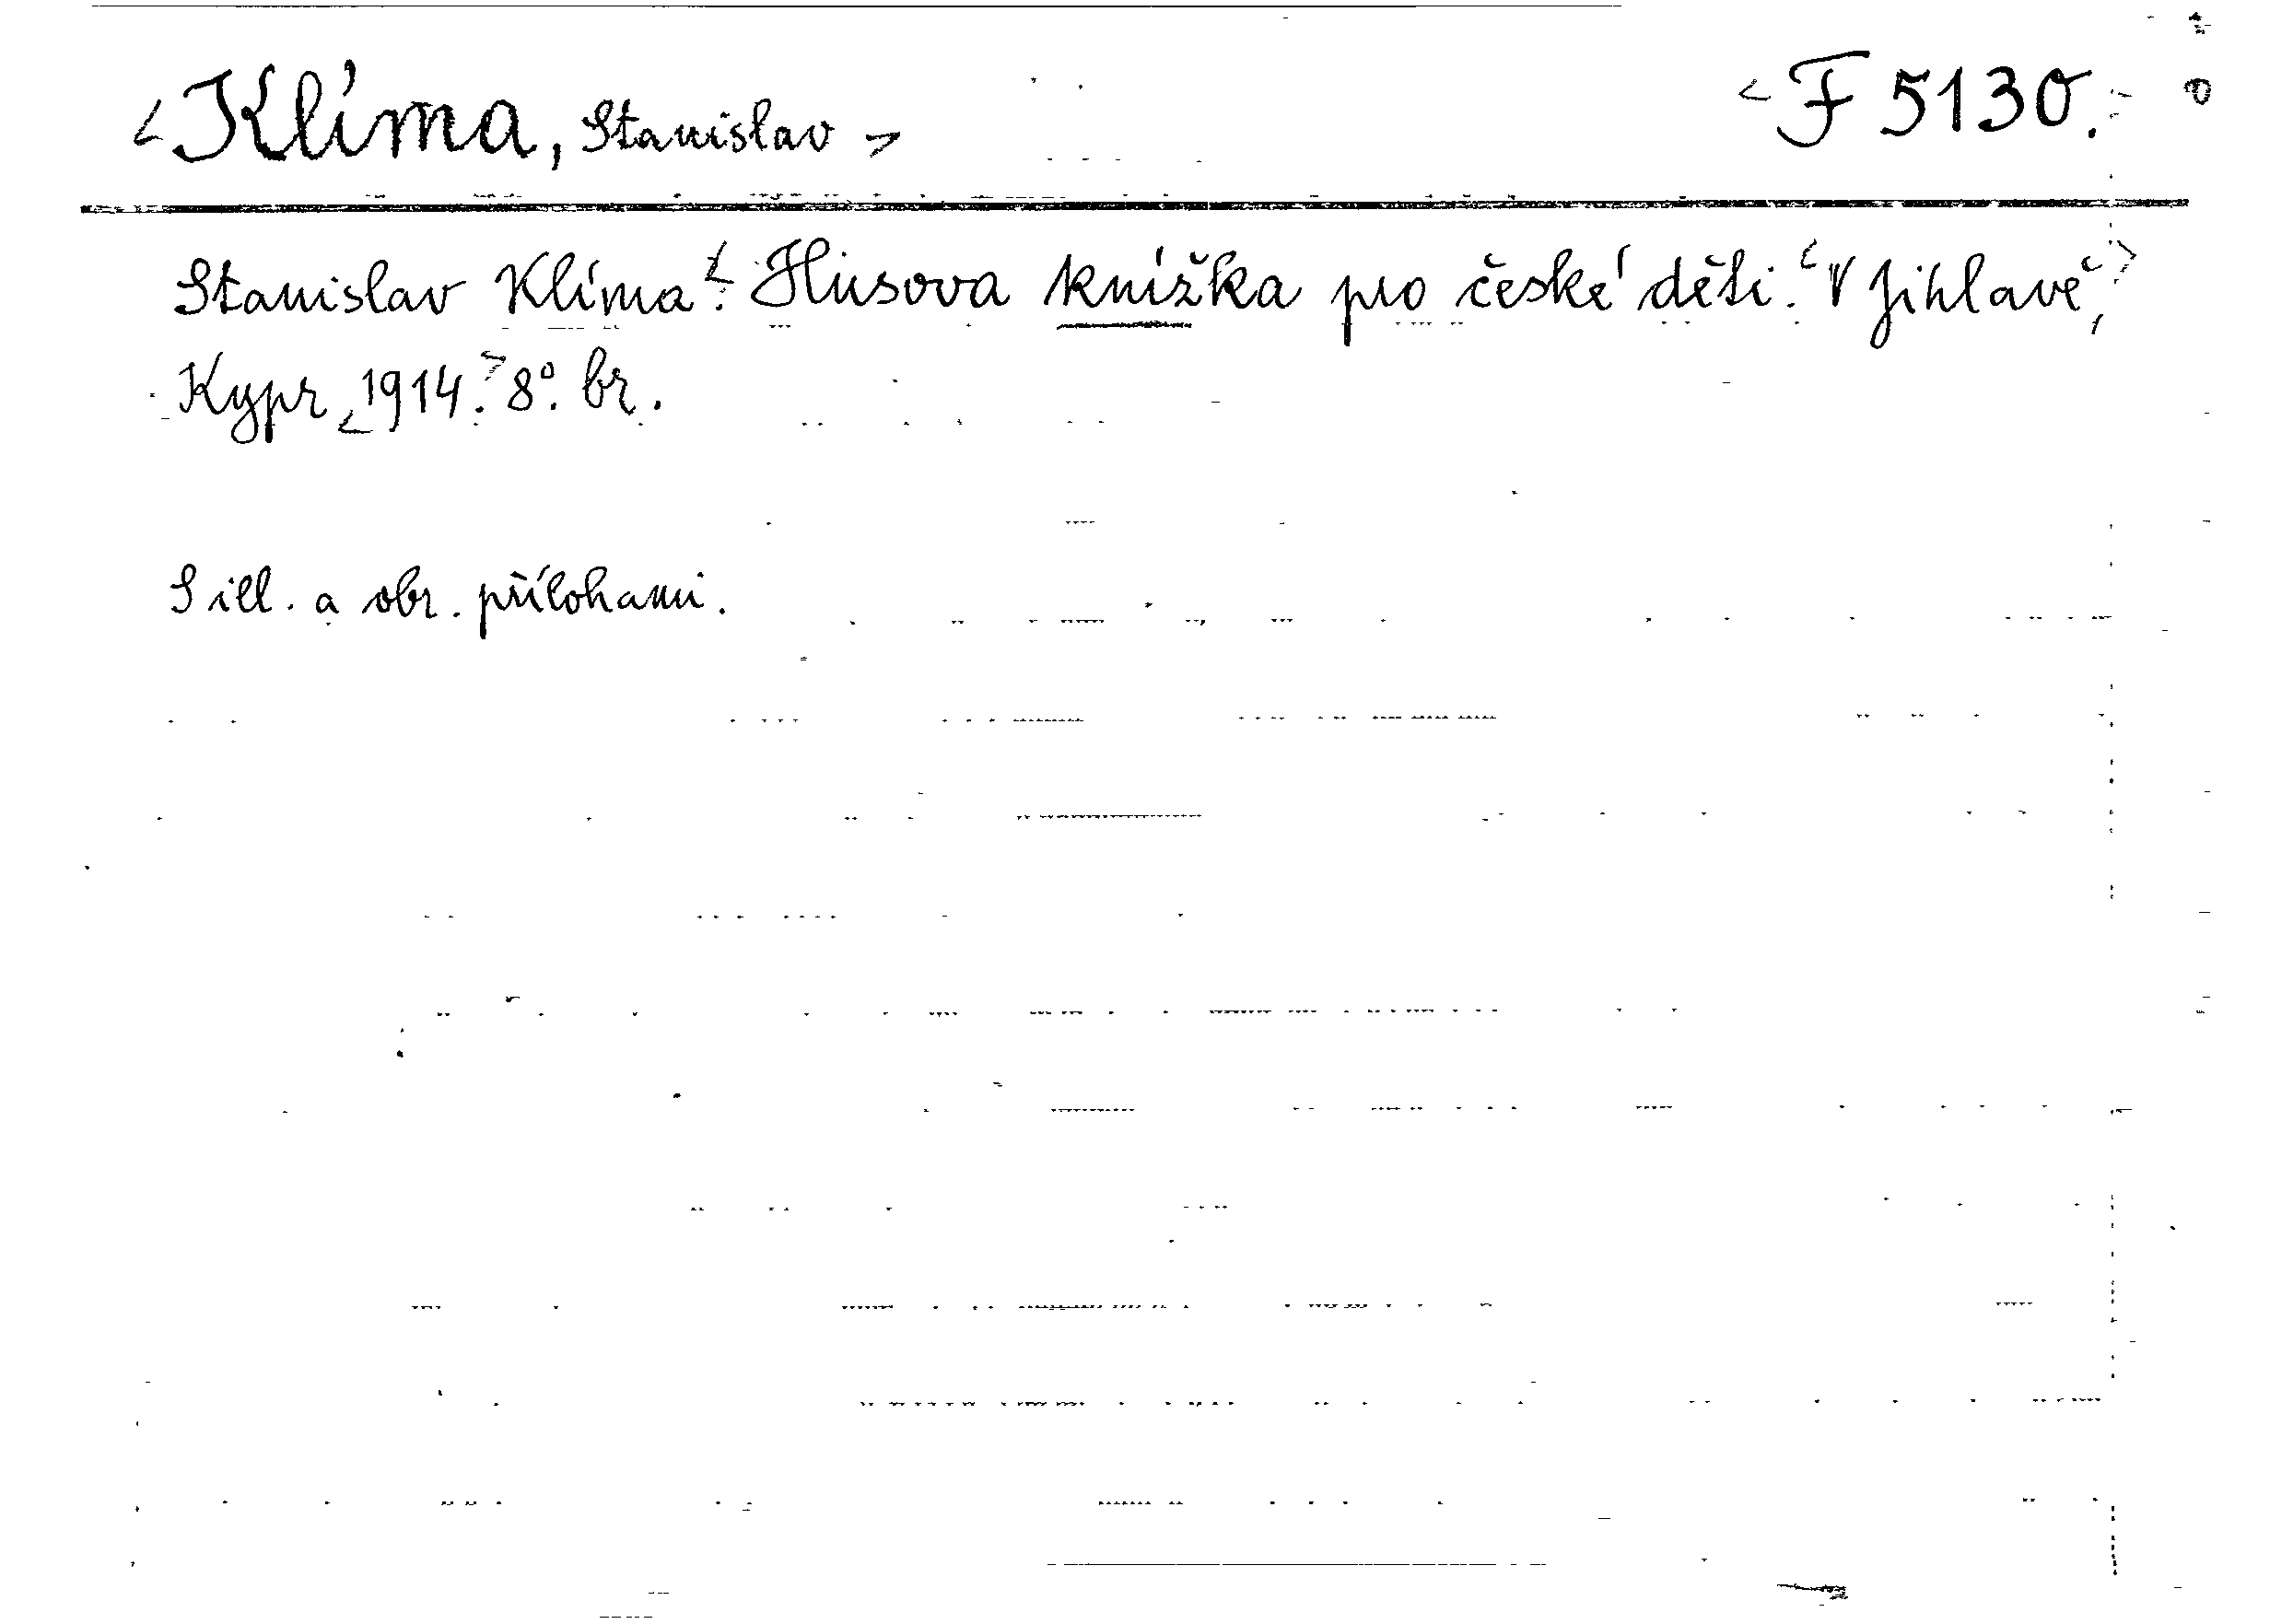 <Klíma, Stanislav> <F 5130.
Stanislav Klíma<: Husova knížka pro české děti.<V Jihlavě,>
Kypr <1914.> 8°. br.
S ill. a obr. přílohami.